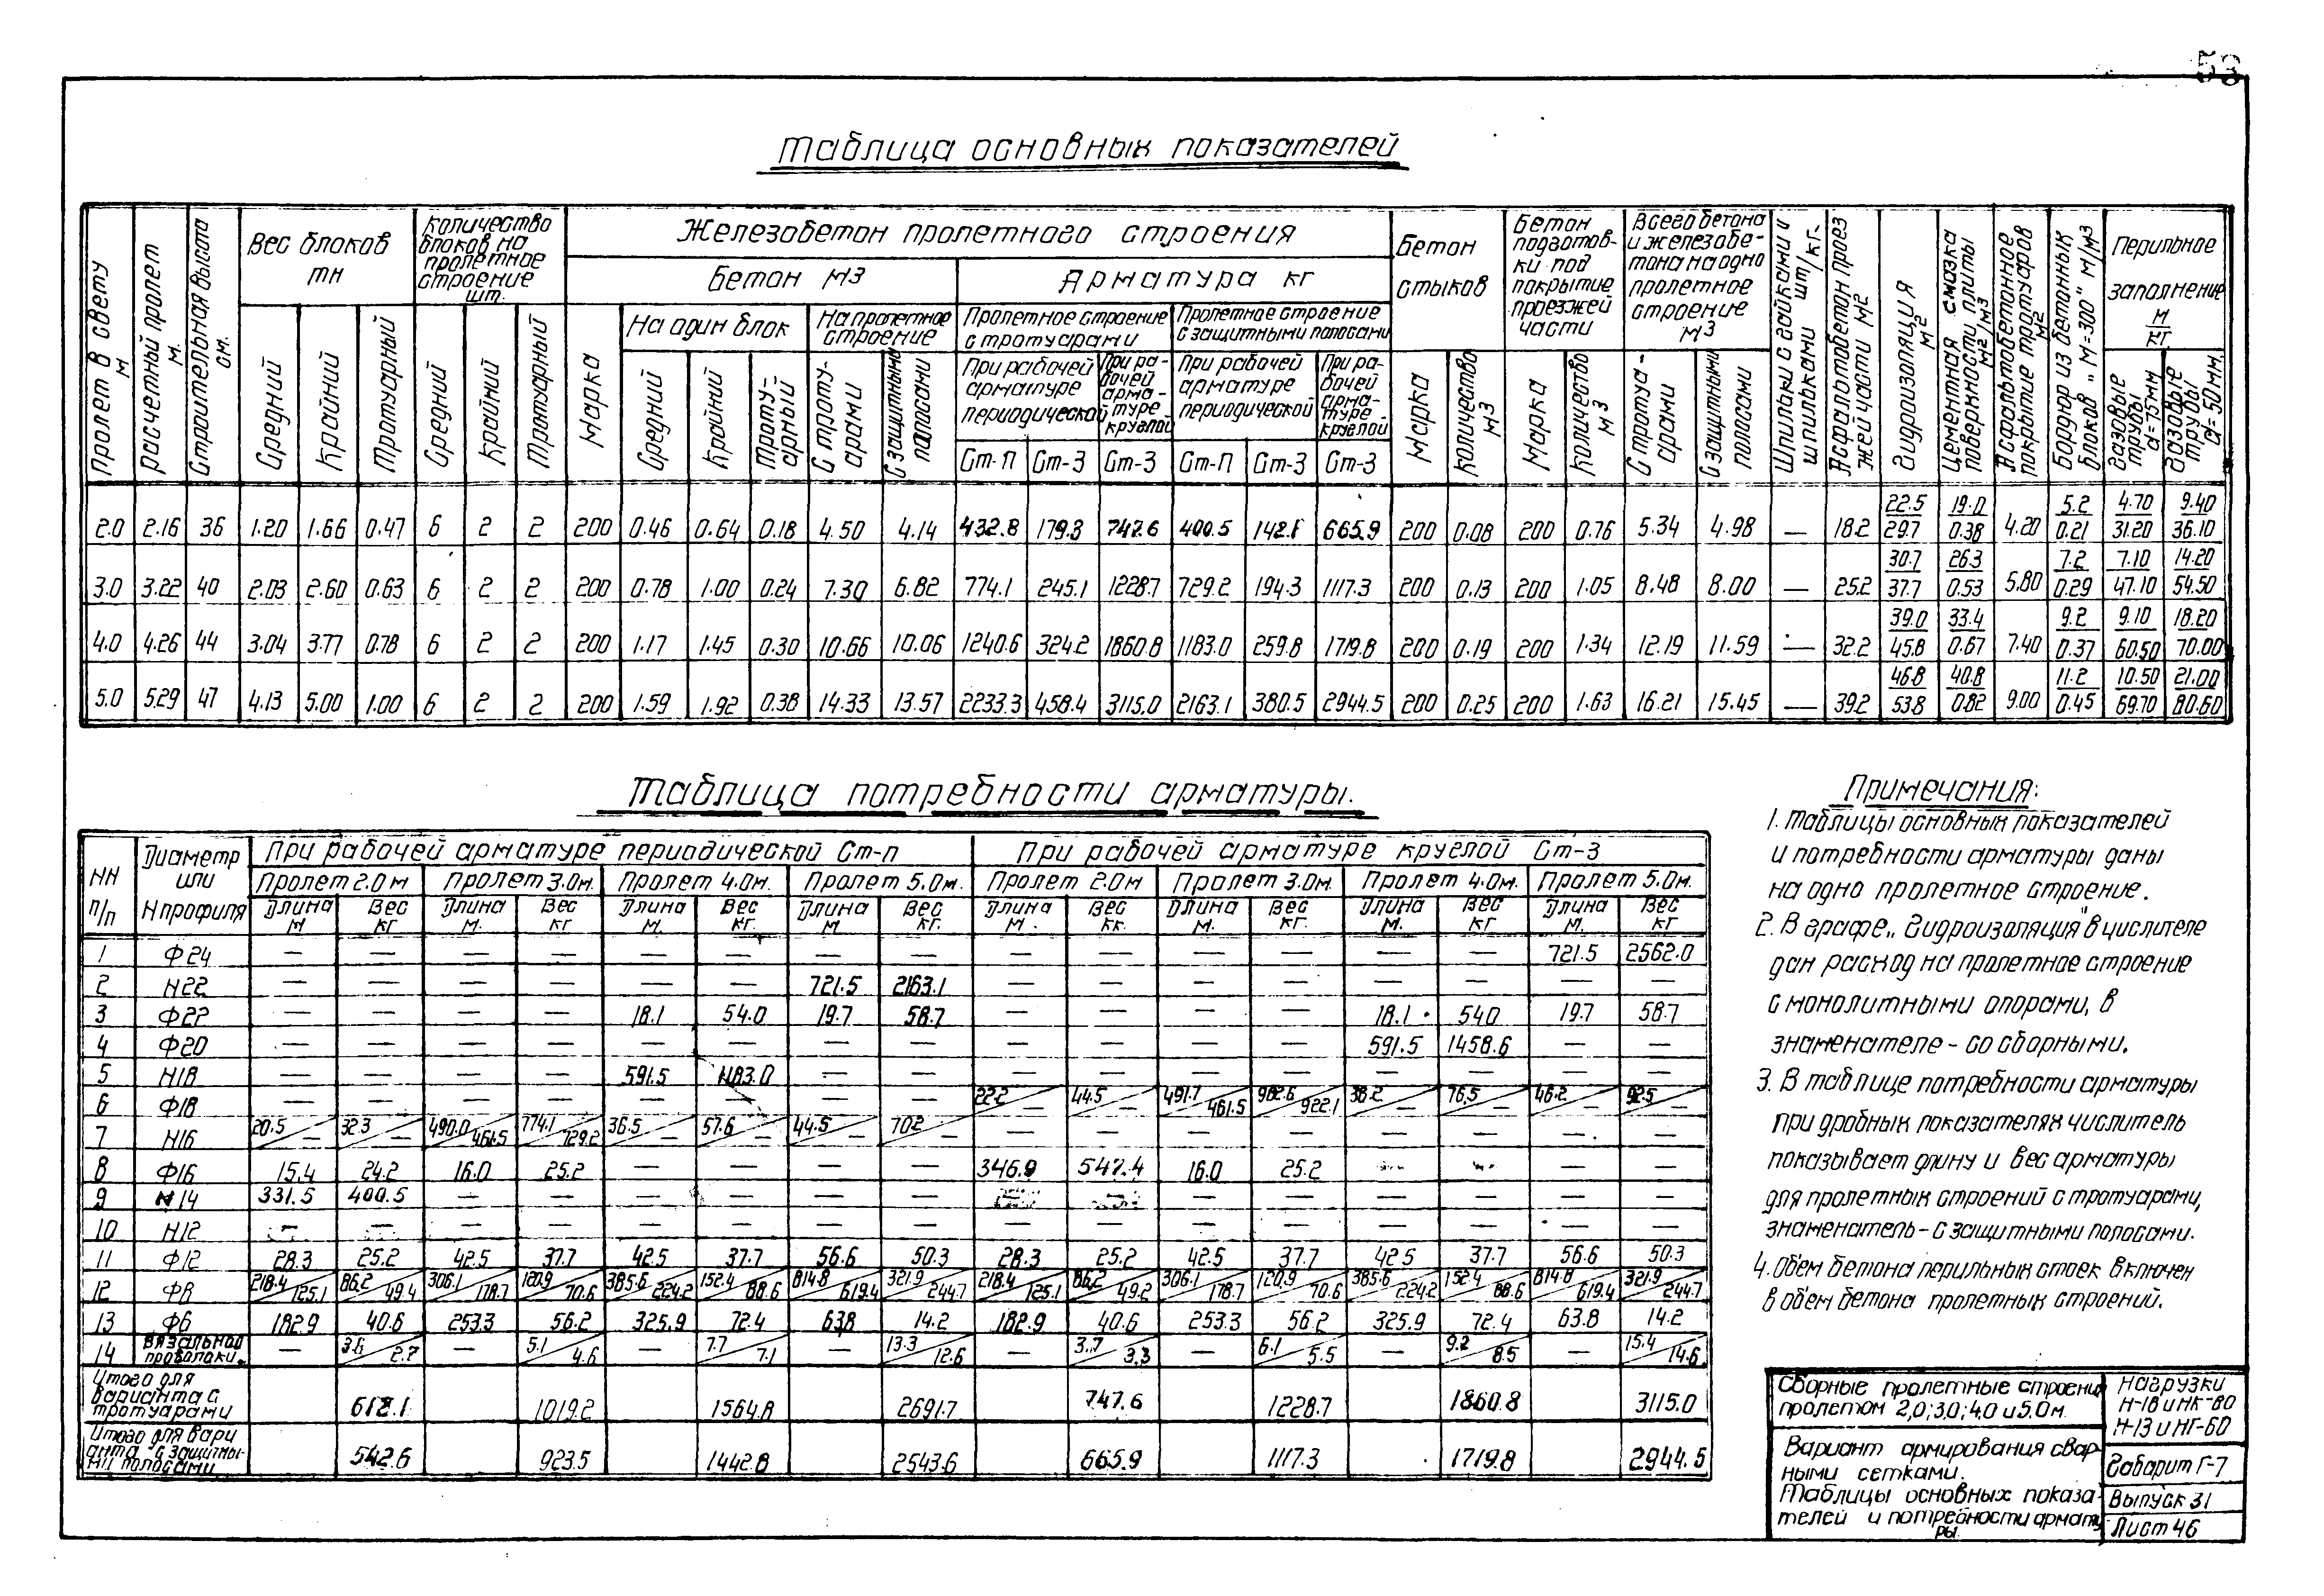 58
Таблица основных показателей
Пролет в свету м
Расчетный пролет м.
Строительная высота см.
Вес блоков тн
Средний
Крайний
Тротуарный
Количество блоков на пролетное строение шт.
Средний
Крайний
Тротуарный
Железобетон пролетного строения
Бетон м3
Марка
На один блок
Средний
Крайний
Троту-арный
На пролетное строение
С троту-арами
С защитными полосами
Арматура кг
Пролетное строение с тротуарами
При рабочей арматуре периодической
При ра-бочей арма-туре круглой
Ст-П Ст-3 Ст-3
Пролетное строение с защитными полосами
При рабочей арматуре периодической
При ра-бочей арма-туре круглой
Ст-П Ст-3 Ст-3
Бетон стыков
Марка
Количество м3
Бетон подготов-ки под покрытие проезжей части
Марка
Количество м3
Всего бетона и железобе-тона на одно пролетное строение м3
С тротуа-рами
С защитными полосами
Шпильки с гайками и шпильками шт/кг.
Асфальтобетон проез жей части м2
Гидроизоляция м2
Цементная смазка поверхности плиты м2/м3
Асфальтобетонное покрытие тротуаров м2
Бордюр из бетонных блоков "М=300" м/м3
Перильное заполнение м/кг.
Газовые трубы d=75мм
Газовые трубы d=50мм.
2.0 2.16 36 1.20 1.66 0.47 6 2 2 200 0.46 0.64 0.18 4.50 4.14 432.8 179.3 747.6 400.5 142.1 665.9 200 0.08 200 0.76 5.34 4.98 — 18.2 22.5/29.7 19.0/0.38 4.20 5.2/0.21 4.70/31.20 9.40/36.10
3.0 3.22 40 2.03 2.60 0.63 6 2 2 200 0.78 1.00 0.24 7.30 6.82 774.1 245.1 1228.7 729.2 194.3 1117.3 200 0.13 200 1.05 8.48 8.00 — 25.2 30.7/37.7 26.3/0.53 5.80 7.2/0.29 7.10/47.10 14.20/54.50
4.0 4.26 44 3.04 3.77 0.78 6 2 2 200 1.17 1.45 0.30 10.66 10.06 1240.6 324.2 1860.8 1183.0 259.8 1719.8 200 0.19 200 1.34 12.19 11.59 — 32.2 39.0/45.8 33.4/0.67 7.40 9.2/0.37 9.10/60.50 18.20/70.00
5.0 5.29 47 4.13 5.00 1.00 6 2 2 200 1.59 1.92 0.38 14.33 13.57 2233.3 458.4 3115.0 2163.1 380.5 2944.5 200 0.25 200 1.63 16.21 15.45 — 39.2 46.8/53.8 40.8/0.82 9.00 11.2/0.45 10.50/69.70 21.00/80.60
Таблица потребности арматуры.
НН п/п
Диаметр или Н профиля
При рабочей арматуре периодической Ст-п
При рабочей арматуре круглой Ст-3
Пролет 2.0 м Пролет 3.0м. Пролет 4.0м. Пролет 5.0м. Пролет 2.0м Пролет 3.0м. Пролет 4.0м. Пролет 5.0м.
Длина м. Вес кг Длина м. Вес кг Длина м. Вес кг. Длина м Вес кг. Длина м. Вес кг. Длина м. Вес кг. Длина м. Вес кг Длина м. Вес кг
1 Ф24 — — — — — — — — — — — — — — 721.5 2562.0
2 Н22 — — — — — — 721.5 2163.1 — — — — — — — —
3 Ф22 — — — — 18.1 54.0 19.7 58.7 — — — — 18.1 54.0 19.7 58.7
4 Ф20 — — — — — — — — — — — — 591.5 1458.6 — —
5 Н18 — — — — 591.5 1183.0 — — — — — — — — — —
6 Ф18 — — — — — — — — 22.2/— 44.5/— 491.7/461.5 982.6/922.1 38.2/— 76.5/— 46.2/— 92.5/—
7 Н16 20.5/— 32.3/— 490.0/461.5 774.1/729.2 36.5/— 57.6/— 44.5/— 70.2/— — — — — — — — —
8 Ф16 15.4 24.2 16.0 25.2 — — — — 346.9 547.4 16.0 25.2 — — — —
9 Н14 331.5 400.5 — — — — — — — — — — — — — —
10 Н12 — — — — — — — — — — — — — — — —
11 Ф12 28.3 25.2 42.5 37.7 42.5 37.7 56.6 50.3 28.3 25.2 42.5 37.7 42.5 37.7 56.6 50.3
12 Ф8 218.4/125.1 86.2/49.4 306.1/178.7 120.9/70.6 385.6/224.2 152.4/88.6 814.8/619.4 321.9/244.7 218.4/125.1 86.2/49.2 306.1/178.7 120.9/70.6 385.6/224.2 152.4/88.6 814.8/619.4 321.9/244.7
13 Ф6 182.9 40.6 253.3 56.2 325.9 72.4 63.8 14.2 182.9 40.6 253.3 56.2 325.9 72.4 63.8 14.2
14 Вязальная проволоки. — 3.6/2.7 — 5.1/4.6 — 7.7/7.1 — 13.3/12.6 — 3.7/3.3 — 6.1/5.5 — 9.2/8.5 — 15.4/14.6
Итого для варианта с тротуарами 612.1 1019.2 1564.8 2691.7 747.6 1228.7 1860.8 3115.0
Итого для вари анта с защитны-ми полосами 542.6 923.5 1442.8 2543.6 665.9 1117.3 1719.8 2944.5
Примечания:
1. Таблицы основных показателей
и потребности арматуры даны
на одно пролетное строение.
2. В графе „Гидроизоляция" в числителе
дан расход на пролетное строение
с монолитными опорами, в
знаменателе - со сборными.
3. В таблице потребности арматуры
при дробных показателях числитель
показывает длину и вес арматуры
для пролетных строений с тротуарами,
знаменатель - с защитными полосами.
4. Объем бетона перильных стоек включен
в объем бетона пролетных строений.
Сборные пролетные строения
пролетом 2,0; 3,0; 4,0 и 5.0м.
Нагрузки
Н-18 и НК-80
Н-13 и НГ-60
Вариант армирования свар-
ными сетками.
Таблицы основных показа-
телей и потребности армату
ры.
Габарит Г-7
Выпуск 31
Лист 46